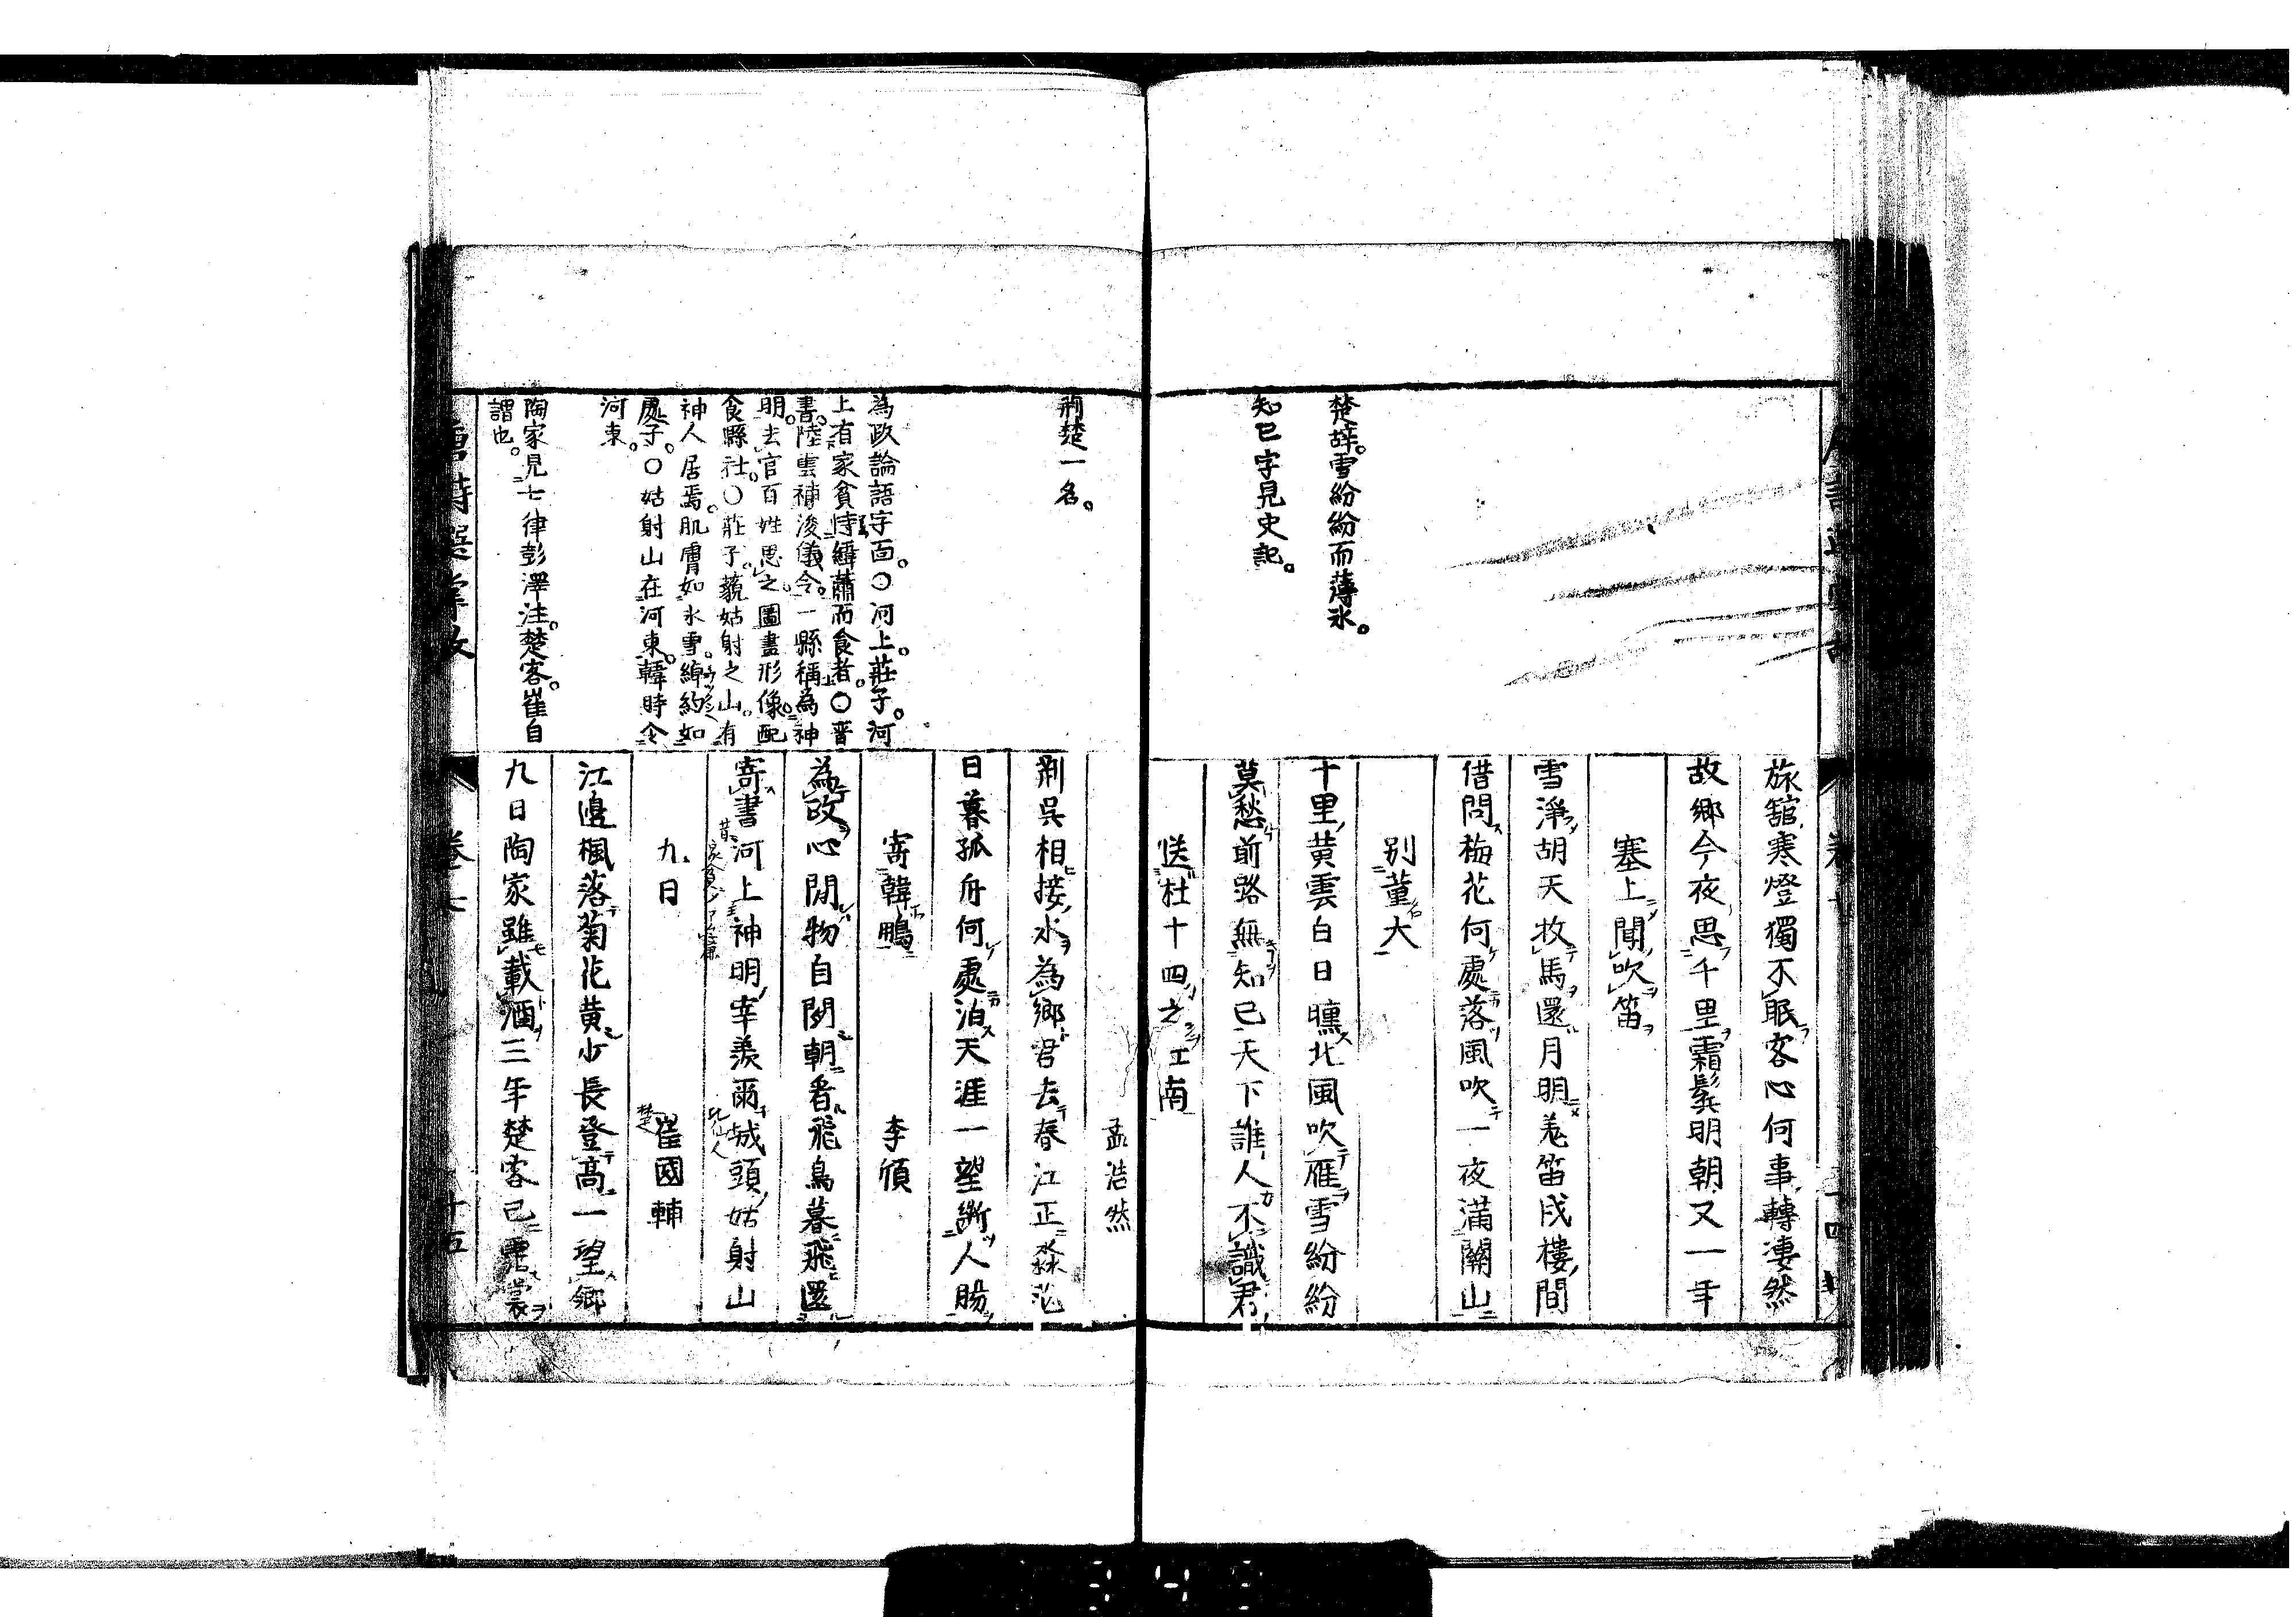 楚辞。雪紛紛而薄氷。
知已字見史記。
旅舘寒燈獨不眠客心何事轉凄然
故鄉今夜思千里霜鬂明朝又一年
塞上聞吹笛
雪淨胡天牧馬還月明羗笛戍樓間
借問梅花何處落風吹一夜滿關山
別董大
十里黄雲白日曛北風吹雁雪紛紛
莫愁前路無知已天下誰人不識君
送杜十四之江南
荊楚一名。
為政論語字面。〇河上。莊子。河
上有家貧恃緯蕭而食者。〇晋
書。陸雲補浚儀令。一縣稱為神
明。去官百姓思之。圖畫形像。配
食縣社。〇莊子。藐姑射之山。有
神人居焉。肌膚如氷雪。綽約如
處子。〇姑射山在河東。韓時令
河東。
陶家見七律彭澤注。楚客。崔自
謂也。
孟浩然
荊吳相接水為鄉君去春江正淼茫
日暮孤舟何處泊天涯一望斷人膓
寄韓鵬
李頎
為政心閒物自閒朝看飛鳥暮飛還
寄書河上神明宰羨爾城頭姑射山
九日
崔國輔
江邊楓落菊花黄少長登高一望鄉
九日陶家雖載酒三年楚客已霑裳
卷七
十五